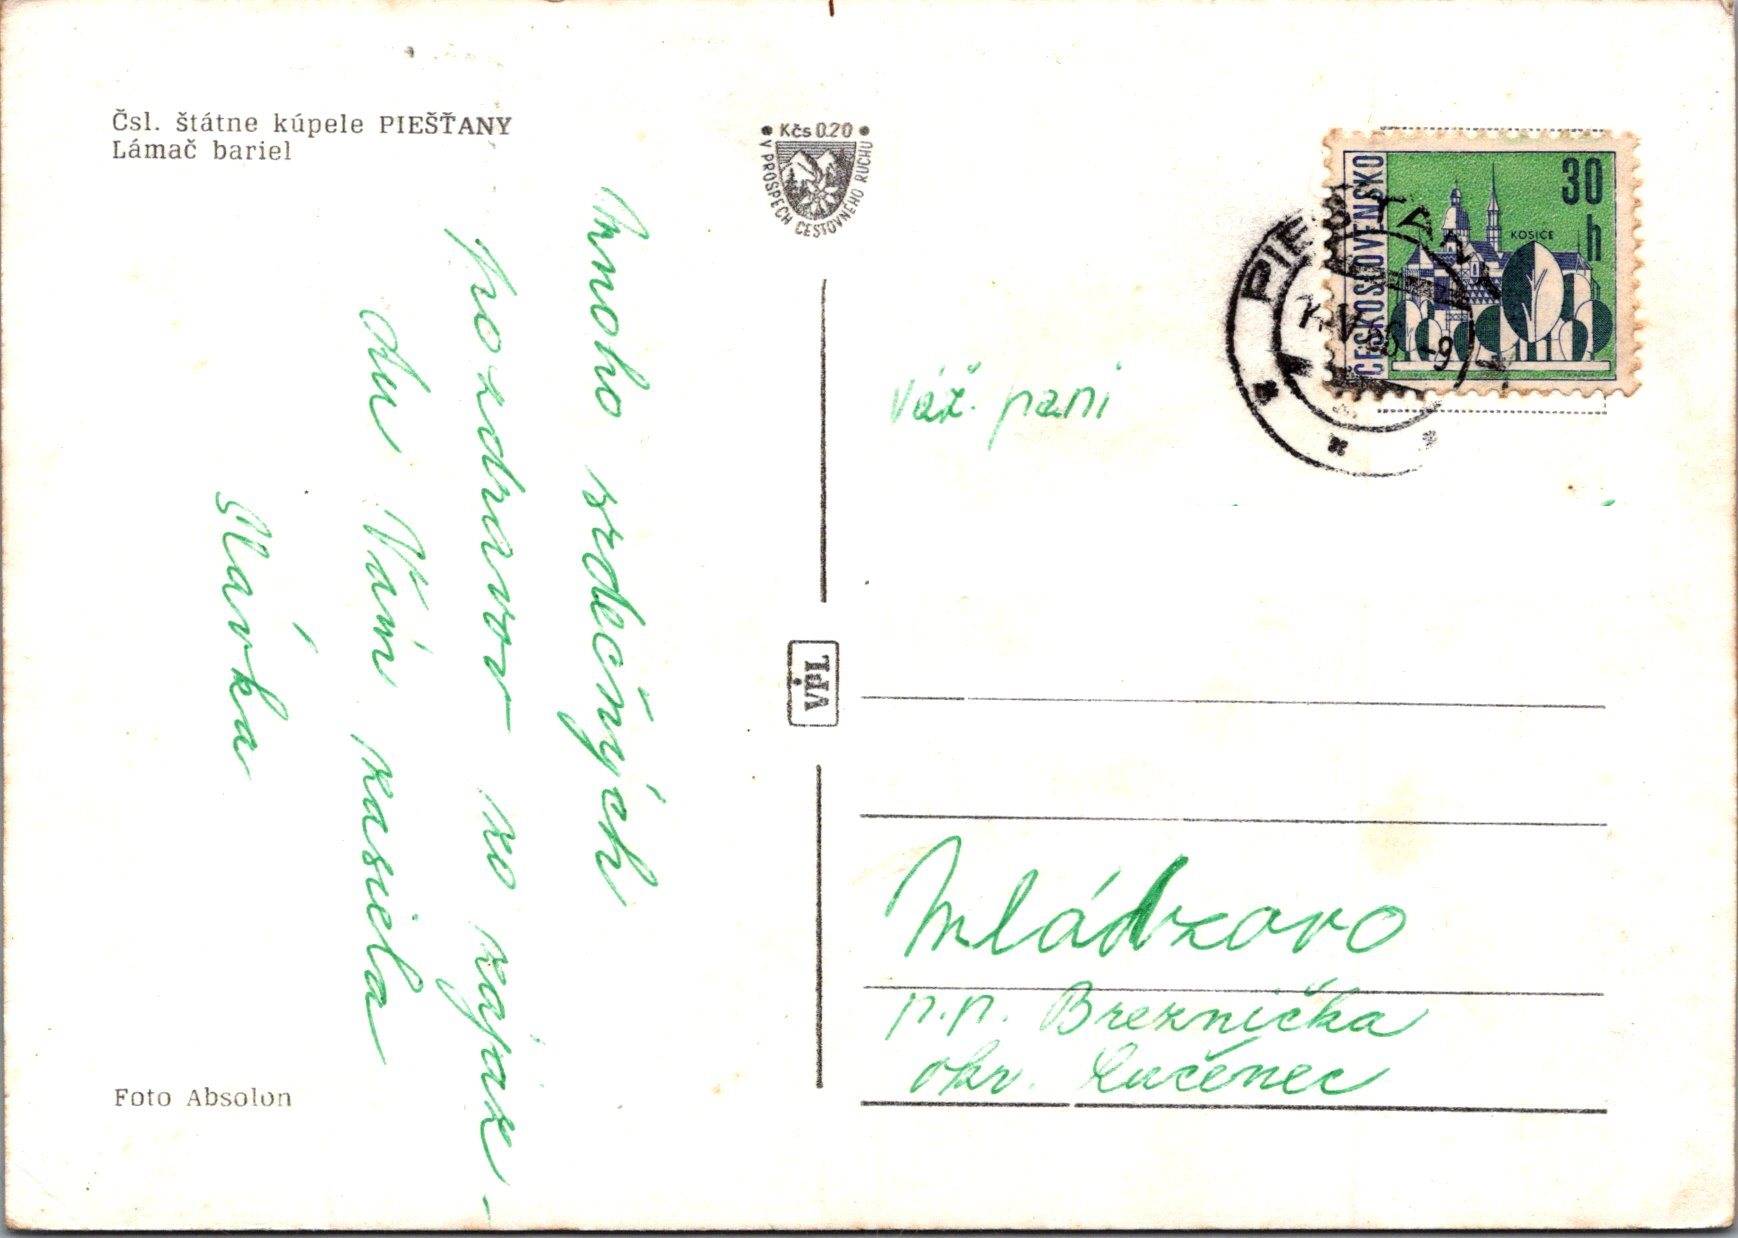 Čsl. štátne kúpele PIEŠŤANY
Lámač bariel
Mnoho srdečných
pozdravov zo zájaz-
du Vám zasiela
Slávka
Foto Absolon
Kčs 0.20
V PROSPECH CESTOVNÉHO RUCHU
VPL
ČESKOSLOVENSKO
30
h
KOŠICE
PIEŠŤANY
Váž. pani
Mládzovo
p.p. Breznička
okr. Lučenec